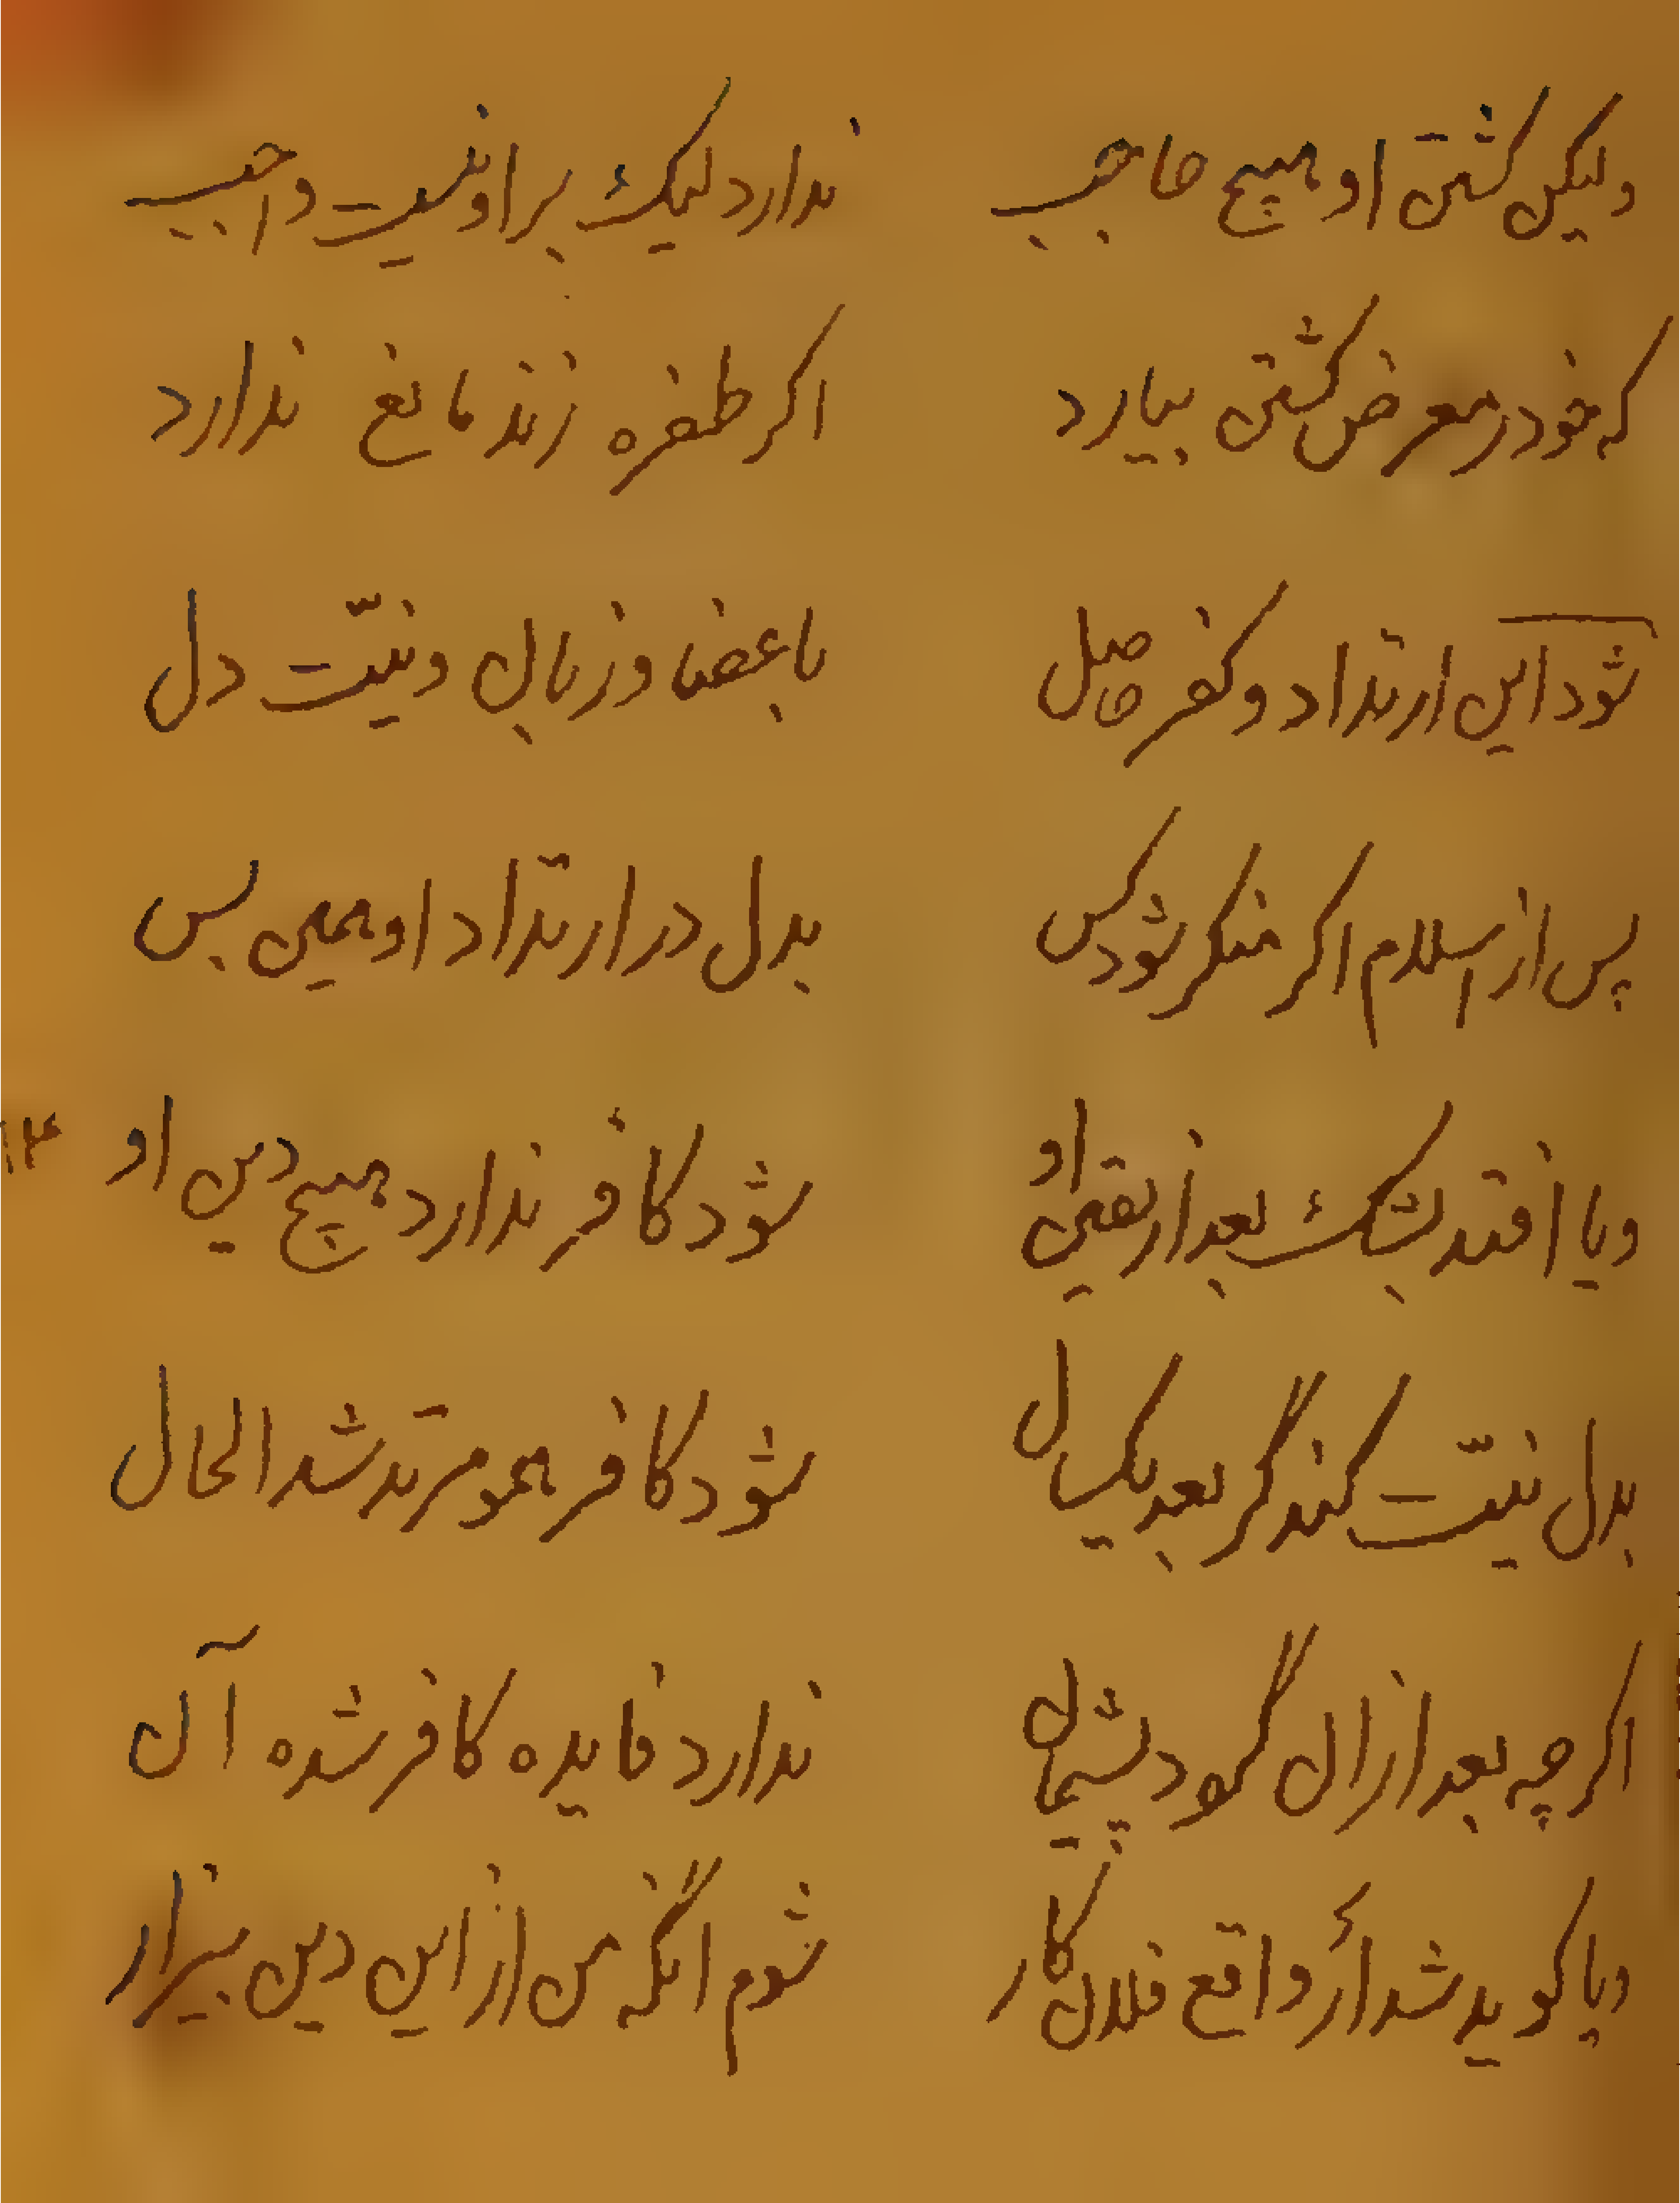 ولیکن کشتن او هیچ حاجب ندارد لیک بر او نیست واجب
که خود در معرض کشتن بیارد اکر طفره زند مانع ندارد
شود این ارتداد و کفر حاصل باعضا و زبان و نیّت دل
پس از اسلام اکر منکر شود کس بدل در ارتداد او همین بس
ویا افتد بشک بعد از یقین او شود کافر ندارد هیچ دین او
۱۴
بدل نیّت کند گر بعد یکسال شود کافر همو مرتد شد الحال
اکر چه بعد از ان گود پشیمان ندارد فایده کافر شده آن
ویا کوید شد ار واقع فلان کار شوم انگه من از این دین بیزار